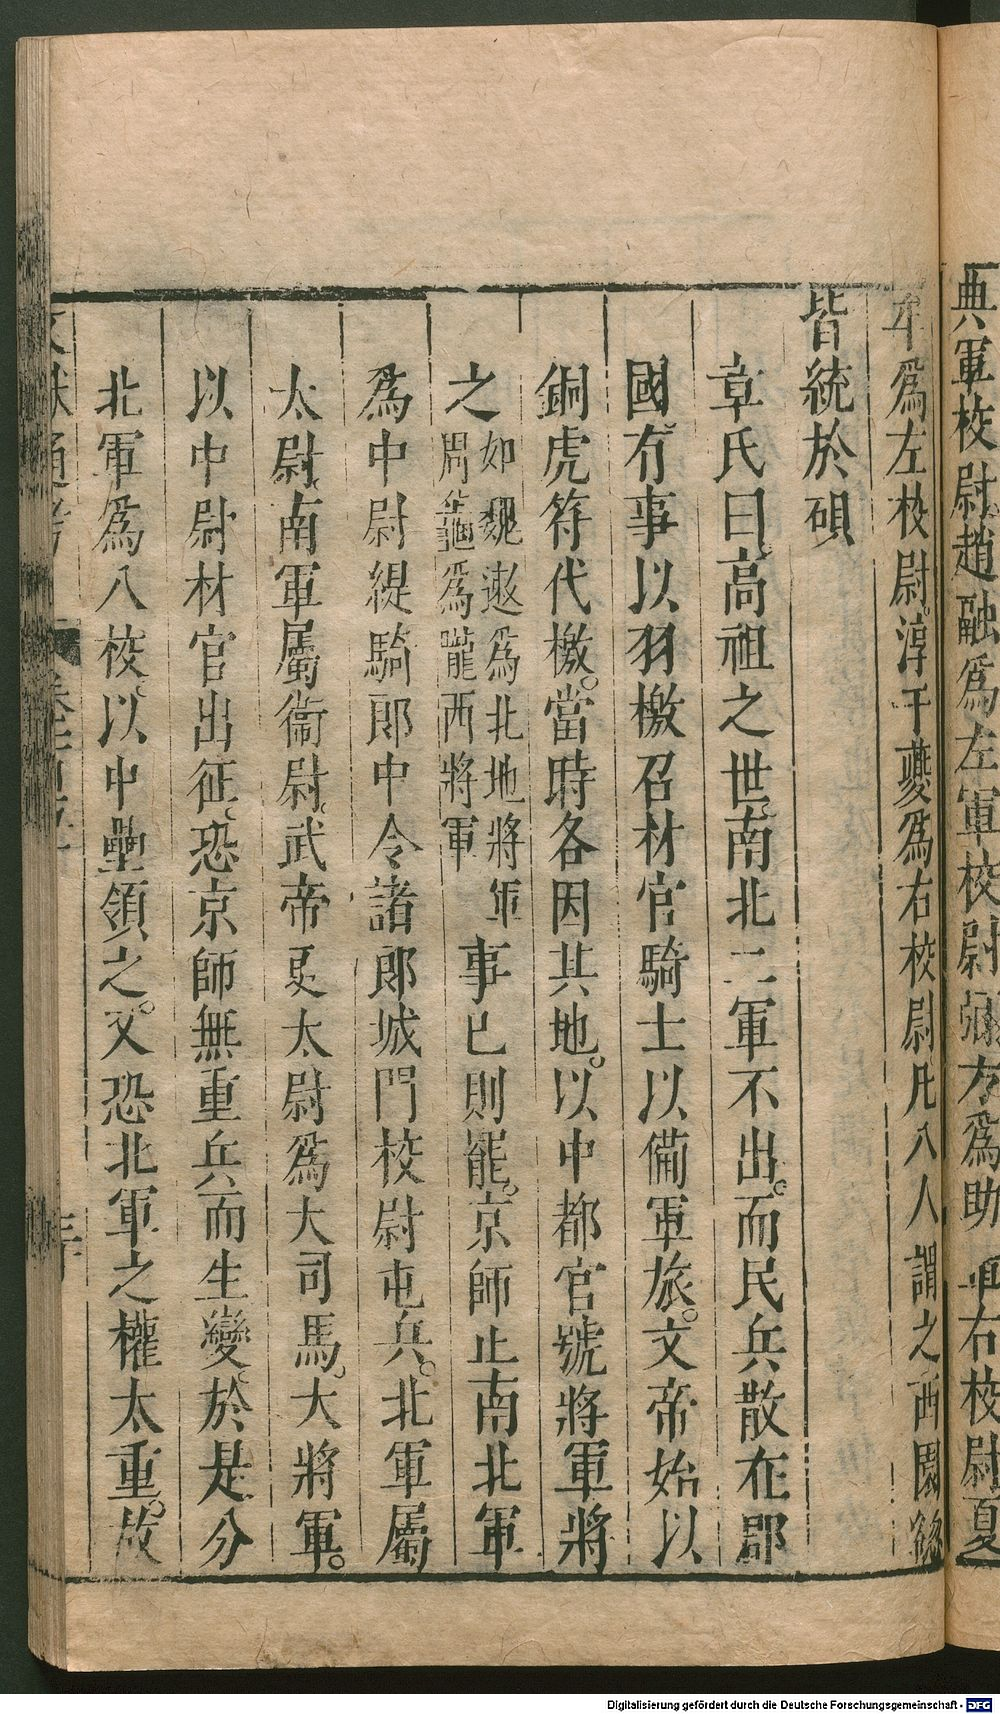 典軍校尉趙融爲左軍校尉馮方爲助軍右校尉夏
牟爲左校尉淳于瓊爲右校尉凡八人謂之西園
皆統於碩
章氏曰高祖之世南北二軍不出而民兵散在郡
國有事以羽檄召材官騎士以備軍旅文帝始以
銅虎符代檄當時各因其地以中都官號將軍將
之如魏遬爲北地將軍
周竈爲隴西將軍
事已則罷京師止南北軍
爲中尉緹騎郎中令諸郎城門校尉屯兵北軍屬
太尉南軍屬衞尉武帝更太尉爲大司馬大將軍
以中尉材官出征恐京師無重兵而生變於是分
北軍爲八校以中壘領之又恐北軍之權太重故
文獻通考
Digitalisierung gefördert durch die Deutsche Forschungsgemeinschaft - DFG